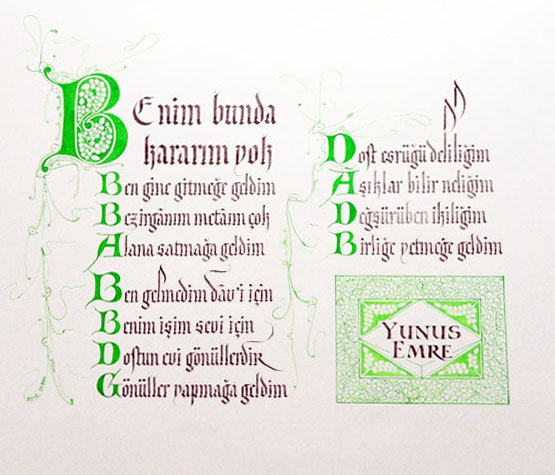 Benim bunda
kararım yok
Ben gine gitmeğe geldim
Bezirgânım metâım çok
Alana satmağa geldim
Ben gelmedim dâv'i için
Benim işim sevi için
Dostun evi gönüllerdir
Gönüller yapmağa geldim
Dost esrüğü deliliğim
Aşıklar bilir neliğim
Değşürüben ikiliğim
Birliğe yetmeğe geldim
YUNUS
EMRE